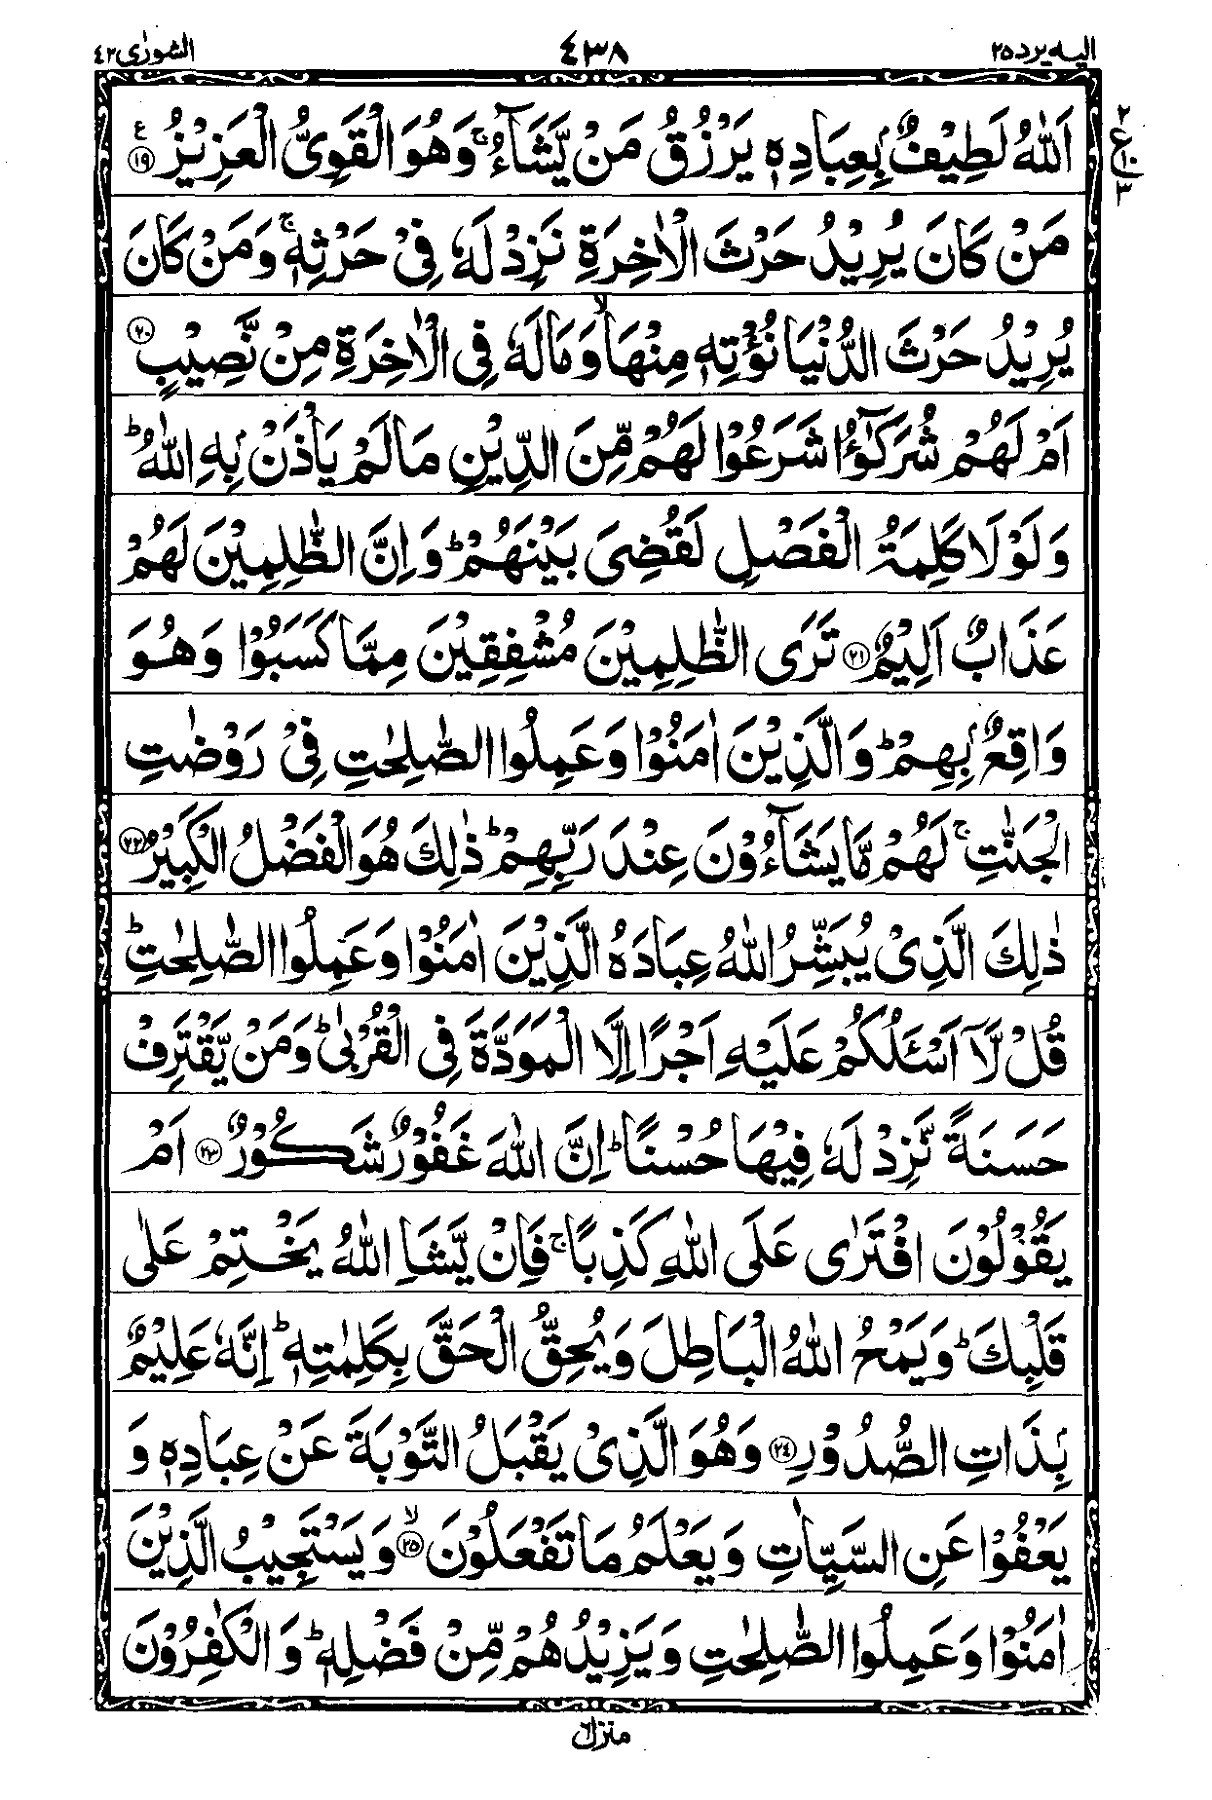 الیه یرد ۲۵
۴۳۸
الشورٰی ۴۲
اَللّٰهُ لَطِیْفٌۢ بِعِبَادِهٖ یَرْزُقُ مَنْ یَّشَآءُ ۚ وَهُوَ الْقَوِیُّ الْعَزِیْزُ ع ﴿۱۹﴾
۲ ع ۱۰ ۳
مَنْ كَانَ یُرِیْدُ حَرْثَ الْاٰخِرَةِ نَزِدْ لَهٗ فِیْ حَرْثِهٖ ۚ وَمَنْ كَانَ
یُرِیْدُ حَرْثَ الدُّنْیَا نُؤْتِهٖ مِنْهَا ۙ وَمَا لَهٗ فِی الْاٰخِرَةِ مِنْ نَّصِیْبٍ ﴿۲۰﴾
اَمْ لَهُمْ شُرَكٰٓؤُا شَرَعُوْا لَهُمْ مِّنَ الدِّیْنِ مَا لَمْ یَاْذَنْۢ بِهِ اللّٰهُ ؕ
وَلَوْلَا كَلِمَةُ الْفَصْلِ لَقُضِیَ بَیْنَهُمْ ؕ وَاِنَّ الظّٰلِمِیْنَ لَهُمْ
عَذَابٌ اَلِیْمٌ ﴿۲۱﴾ تَرَی الظّٰلِمِیْنَ مُشْفِقِیْنَ مِمَّا كَسَبُوْا وَهُوَ
وَاقِعٌۢ بِهِمْ ؕ وَالَّذِیْنَ اٰمَنُوْا وَعَمِلُوا الصّٰلِحٰتِ فِیْ رَوْضٰتِ
الْجَنّٰتِ ۚ لَهُمْ مَّا یَشَآءُوْنَ عِنْدَ رَبِّهِمْ ؕ ذٰلِكَ هُوَ الْفَضْلُ الْكَبِیْرُ ﴿۲۲﴾
ذٰلِكَ الَّذِیْ یُبَشِّرُ اللّٰهُ عِبَادَهُ الَّذِیْنَ اٰمَنُوْا وَعَمِلُوا الصّٰلِحٰتِ ؕ
قُلْ لَّاۤ اَسْـَٔلُكُمْ عَلَیْهِ اَجْرًا اِلَّا الْمَوَدَّةَ فِی الْقُرْبٰی ؕ وَمَنْ یَّقْتَرِفْ
حَسَنَةً نَّزِدْ لَهٗ فِیْهَا حُسْنًا ؕ اِنَّ اللّٰهَ غَفُوْرٌ شَكُوْرٌ ﴿۲۳﴾ اَمْ
یَقُوْلُوْنَ افْتَرٰی عَلَی اللّٰهِ كَذِبًا ۚ فَاِنْ یَّشَاِ اللّٰهُ یَخْتِمْ عَلٰی
قَلْبِكَ ؕ وَیَمْحُ اللّٰهُ الْبَاطِلَ وَیُحِقُّ الْحَقَّ بِكَلِمٰتِهٖ ؕ اِنَّهٗ عَلِیْمٌۢ
بِذَاتِ الصُّدُوْرِ ﴿۲۴﴾ وَهُوَ الَّذِیْ یَقْبَلُ التَّوْبَةَ عَنْ عِبَادِهٖ وَ
یَعْفُوْا عَنِ السَّیِّاٰتِ وَیَعْلَمُ مَا تَفْعَلُوْنَ ۙ ﴿۲۵﴾ وَیَسْتَجِیْبُ الَّذِیْنَ
اٰمَنُوْا وَعَمِلُوا الصّٰلِحٰتِ وَیَزِیْدُهُمْ مِّنْ فَضْلِهٖ ؕ وَالْكٰفِرُوْنَ
منزل ۶